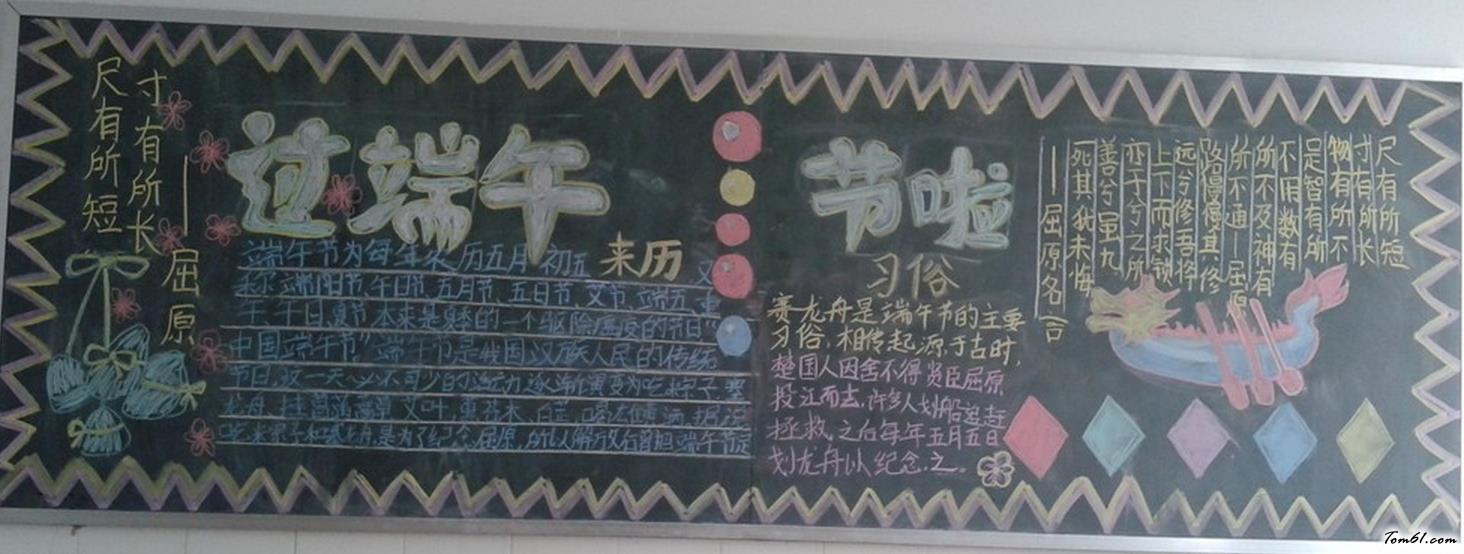 尺有所短
寸有所长
——屈原
过端午
节啦
来历
端午节为每年农历五月初五 又
称端阳节、午日节、五月节、五日节、艾节、端五、重
午、午日、夏节 本来是夏季的一个驱除瘟疫的节日
中国端午节 端午节是我国汉族人民的传统
节日,这一天必不可少的活动逐渐演变为吃粽子,赛
龙舟、挂菖蒲蒿草 艾叶,熏苍术 白芷 喝雄黄酒,据说
吃粽子和赛龙舟是为了纪念屈原,所以解放后曾把端午节
习俗
赛龙舟是端午节的主要
习俗,相传起源于古时,
楚国人因舍不得贤臣屈原
投江而去,许多人划船追赶
拯救,之后每年五月五日
划龙舟以纪念之。
尺有所短
寸有所长
物有所不
足智有所
不明数有
所不及神有
所不通—屈原
路慢慢其修
远兮修吾
上下而求锁
亦于兮之所
善兮虽九
死其我未悔
——屈原名言
Tom61.com